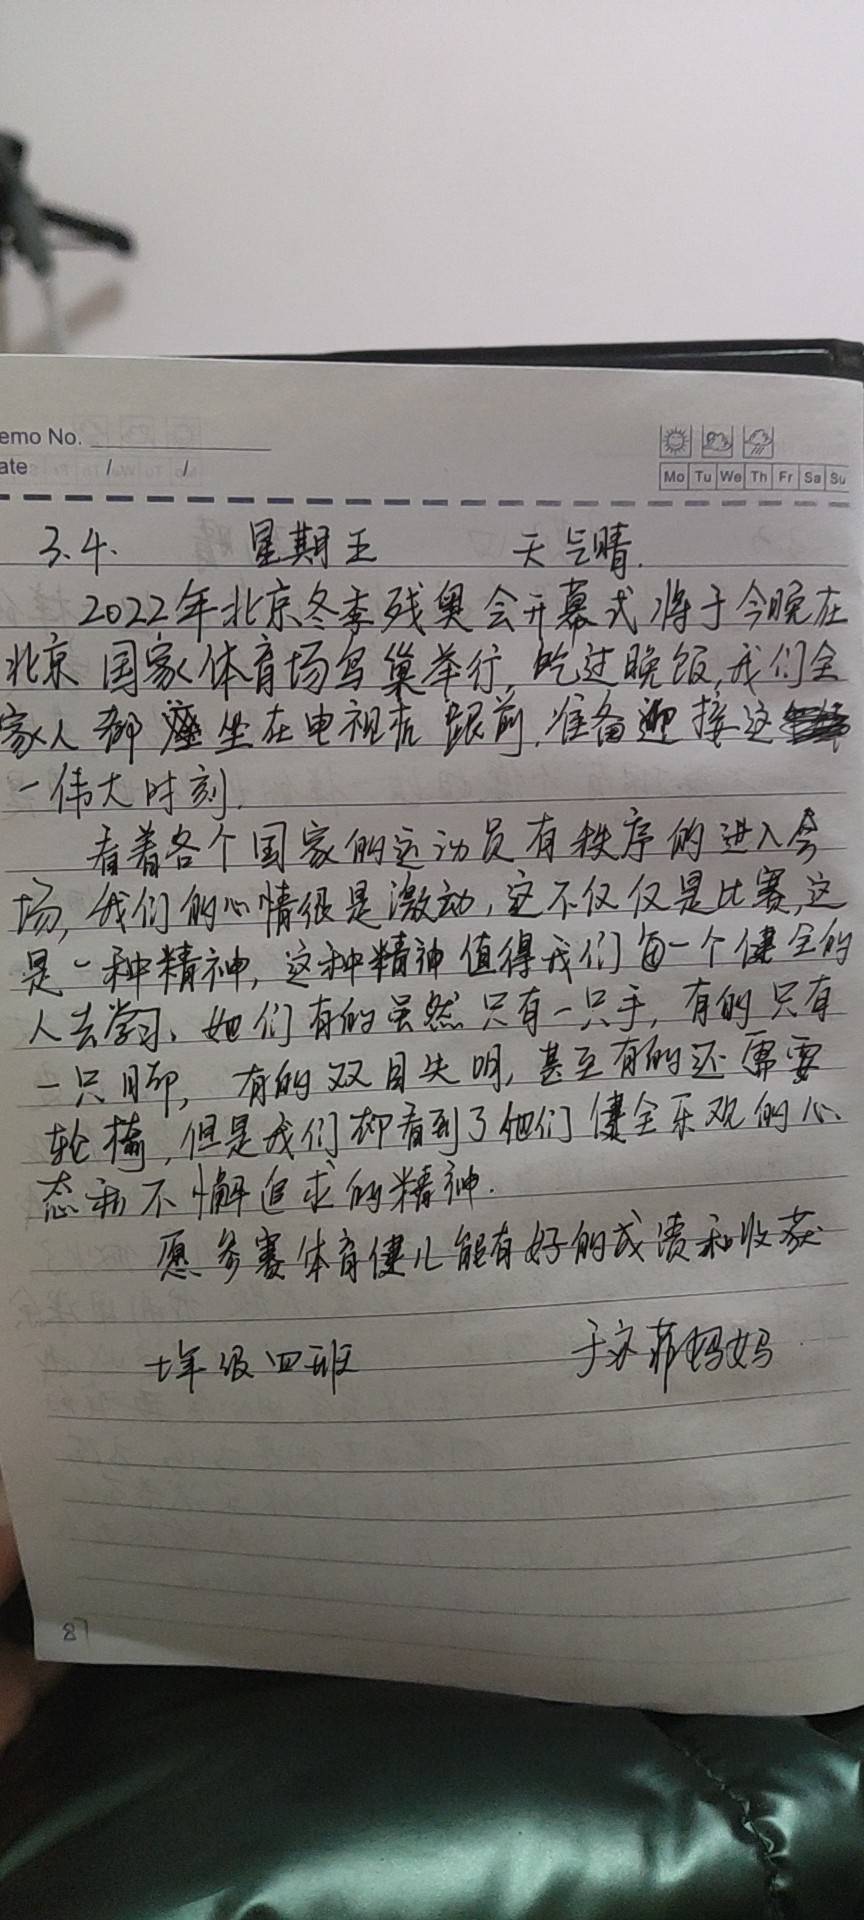 emo No.
ate / /
Mo Tu We Th Fr Sa Su
3.4. 星期五 天气晴.
2022年北京冬季残奥会开幕式将于今晚在
北京国家体育场鸟巢举行,吃过晚饭,我们全
家人都坐在电视机跟前,准备迎接这
一伟大时刻.
看着各个国家的运动员有秩序的进入会
场,我们的心情很是激动,这不仅仅是比赛,这
是一种精神,这种精神值得我们每一个健全的
人去学习、她们有的虽然只有一只手,有的只有
一只脚,有的双目失明,甚至有的还需要
轮椅,但是我们却看到了他们健全乐观的心
态和不懈追求的精神.
愿参赛体育健儿能有好的成绩和收获
七年级四班 于亦菲妈妈
87